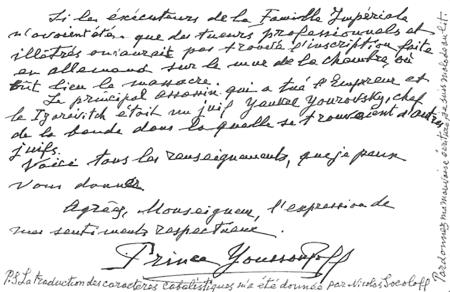 Si les exécuteurs de la Famille Impériale
n'avaient été que des tueurs professionnels et
illétrés on aurait pas trouvé l'inscription faite
en allemand sur le mur de la chambre où
eut lieu le massacre.
Le principal assassin qui a tué l'Empreur et
le Tzarévitch était un juif Yankel Yourovsky, chef
de la bande dans laquelle se trouvaient d'autres
juifs.
Voici tous les renseignements, que je peux
vous donner
Agréez, Monseigneur, l'expression de
mes sentiments respectueux.
Prince Youssoupoff
P.S. La traduction des caractères cabalistiques m'a été donnée par Nicolas Socoloff
Pardonnez ma mauvaise écriture, je suis malade au lit.